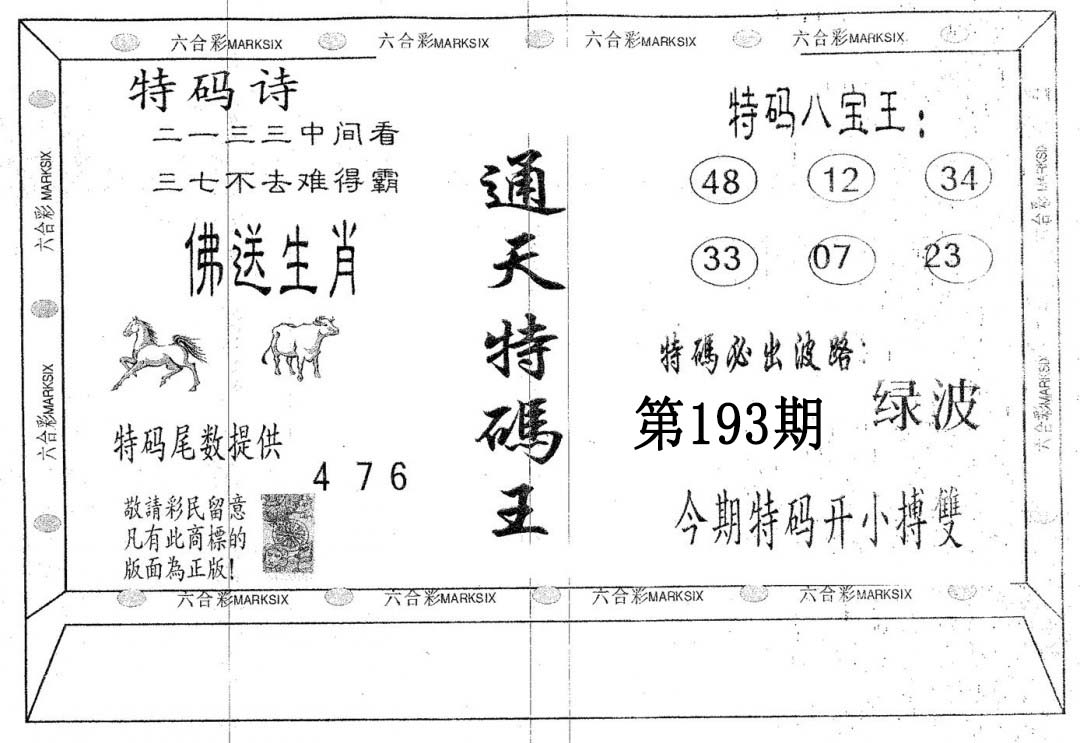 六合彩MARKSIX 六合彩MARKSIX 六合彩MARKSIX 六合彩MARKSIX
六合彩MARKSIX
六合彩MARKSIX
特码诗
二一三三中间看
三七不去难得霸
佛送生肖
特码尾数提供
4 7 6
敬請彩民留意
凡有此商標的
版面為正版!
通天特碼王
特码八宝王:
48 12 34
33 07 23
特碼必出波路:
绿波
第193期
今期特码开小搏雙
六合彩MARKSIX
六合彩MARKSIX
六合彩MARKSIX 六合彩MARKSIX 六合彩MARKSIX 六合彩MARKSIX